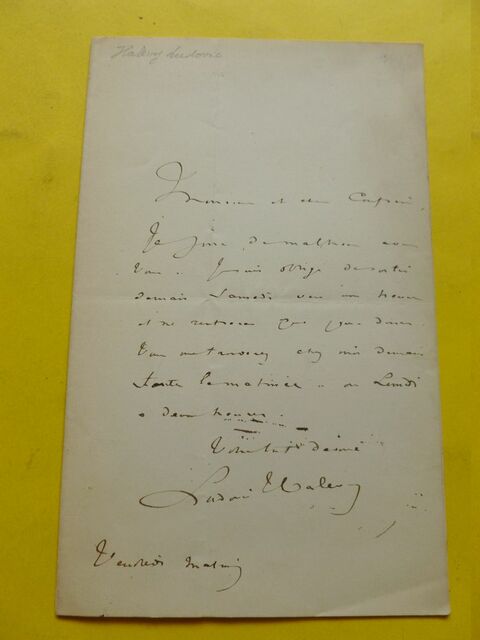 Halevy Ludovic
Monsieur et cher Confrère,
Je joue de malheur avec
Vous. Je suis obligé de sortir
demain Samedi vers une heure
et ne rentrerai que pour diner.
Vous me trouverez chez moi demain
toute la matinée ou Lundi
a deux heures.
Votre tout dévoué
Ludovic Halevy
Vendredi matin